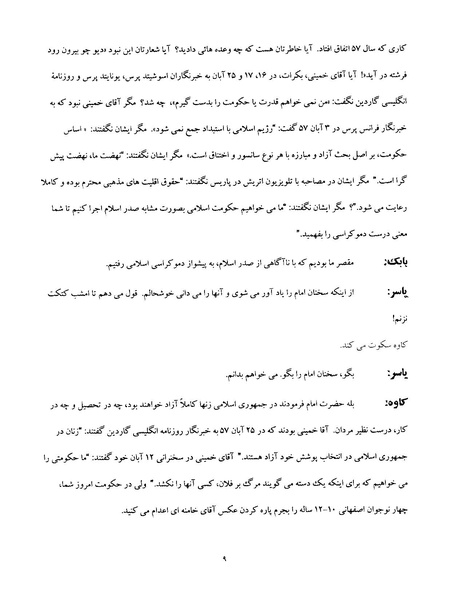 کاری که سال ۵۷ اتفاق افتاد. آیا خاطرتان هست که چه وعده هائی دادید؟ آیا شعارتان این نبود «دیو چو بیرون رود
فرشته در آید»! آیا آقای خمینی، بکرات، در ۱۶، ۱۷ و ۲۵ آبان به خبرنگاران اسوشیتد پرس، یونایتد پرس و روزنامة
انگلیسی گاردین نگفت: «من نمی خواهم قدرت یا حکومت را بدست گیرم»، چه شد؟ مگر آقای خمینی نبود که به
خبرنگار فرانس پرس در ۳ آبان ۵۷ گفت: "رژیم اسلامی با استبداد جمع نمی شود». مگر ایشان نگفتند: « اساس
حکومت، بر اصل بحث آزاد و مبارزه با هر نوع سانسور و اختناق است.» مگر ایشان نگفتند: "نهضت ما، نهضت پیش
گرا است." مگر ایشان در مصاحبه با تلویزیون اتریش در پاریس نگفتند: "حقوق اقلیت های مذهبی محترم بوده و کاملا
رعایت می شود."؟ مگر ایشان نگفتند: "ما می خواهیم حکومت اسلامی بصورت مشابه صدر اسلام اجرا کنیم تا شما
معنی درست دموکراسی را بفهمید."
بابک: مقصر ما بودیم که با ناآگاهی از صدر اسلام، به پیشواز دموکراسی اسلامی رفتیم.
یاسر: از اینکه سخنان امام را یاد آور می شوی و آنها را می دانی خوشحالم. قول می دهم تا امشب کتکت
نزنم!
کاوه سکوت می کند.
یاسر: بگو، سخنان امام را بگو. می خواهم بدانم.
کاوه: بله حضرت امام فرمودند در جمهوری اسلامی زنها کاملاً آزاد خواهند بود، چه در تحصیل و چه در
کار، درست نظیر مردان. آقا خمینی بودند که در ۲۵ آبان ۵۷ به خبرنگار روزنامه انگلیسی گاردین گفتند: "زنان در
جمهوری اسلامی در انتخاب پوشش خود آزاد هستند." آقای خمینی در سخنرانی ۱۲ آبان خود گفتند: "ما حکومتی را
می خواهیم که برای اینکه یک دسته می گویند مرگ بر فلان، کسی آنها را نکشد." ولی در حکومت امروز شما،
چهار نوجوان اصفهانی ۱۰-۱۲ ساله را بجرم پاره کردن عکس آقای خامنه ای اعدام می کنید.
۹